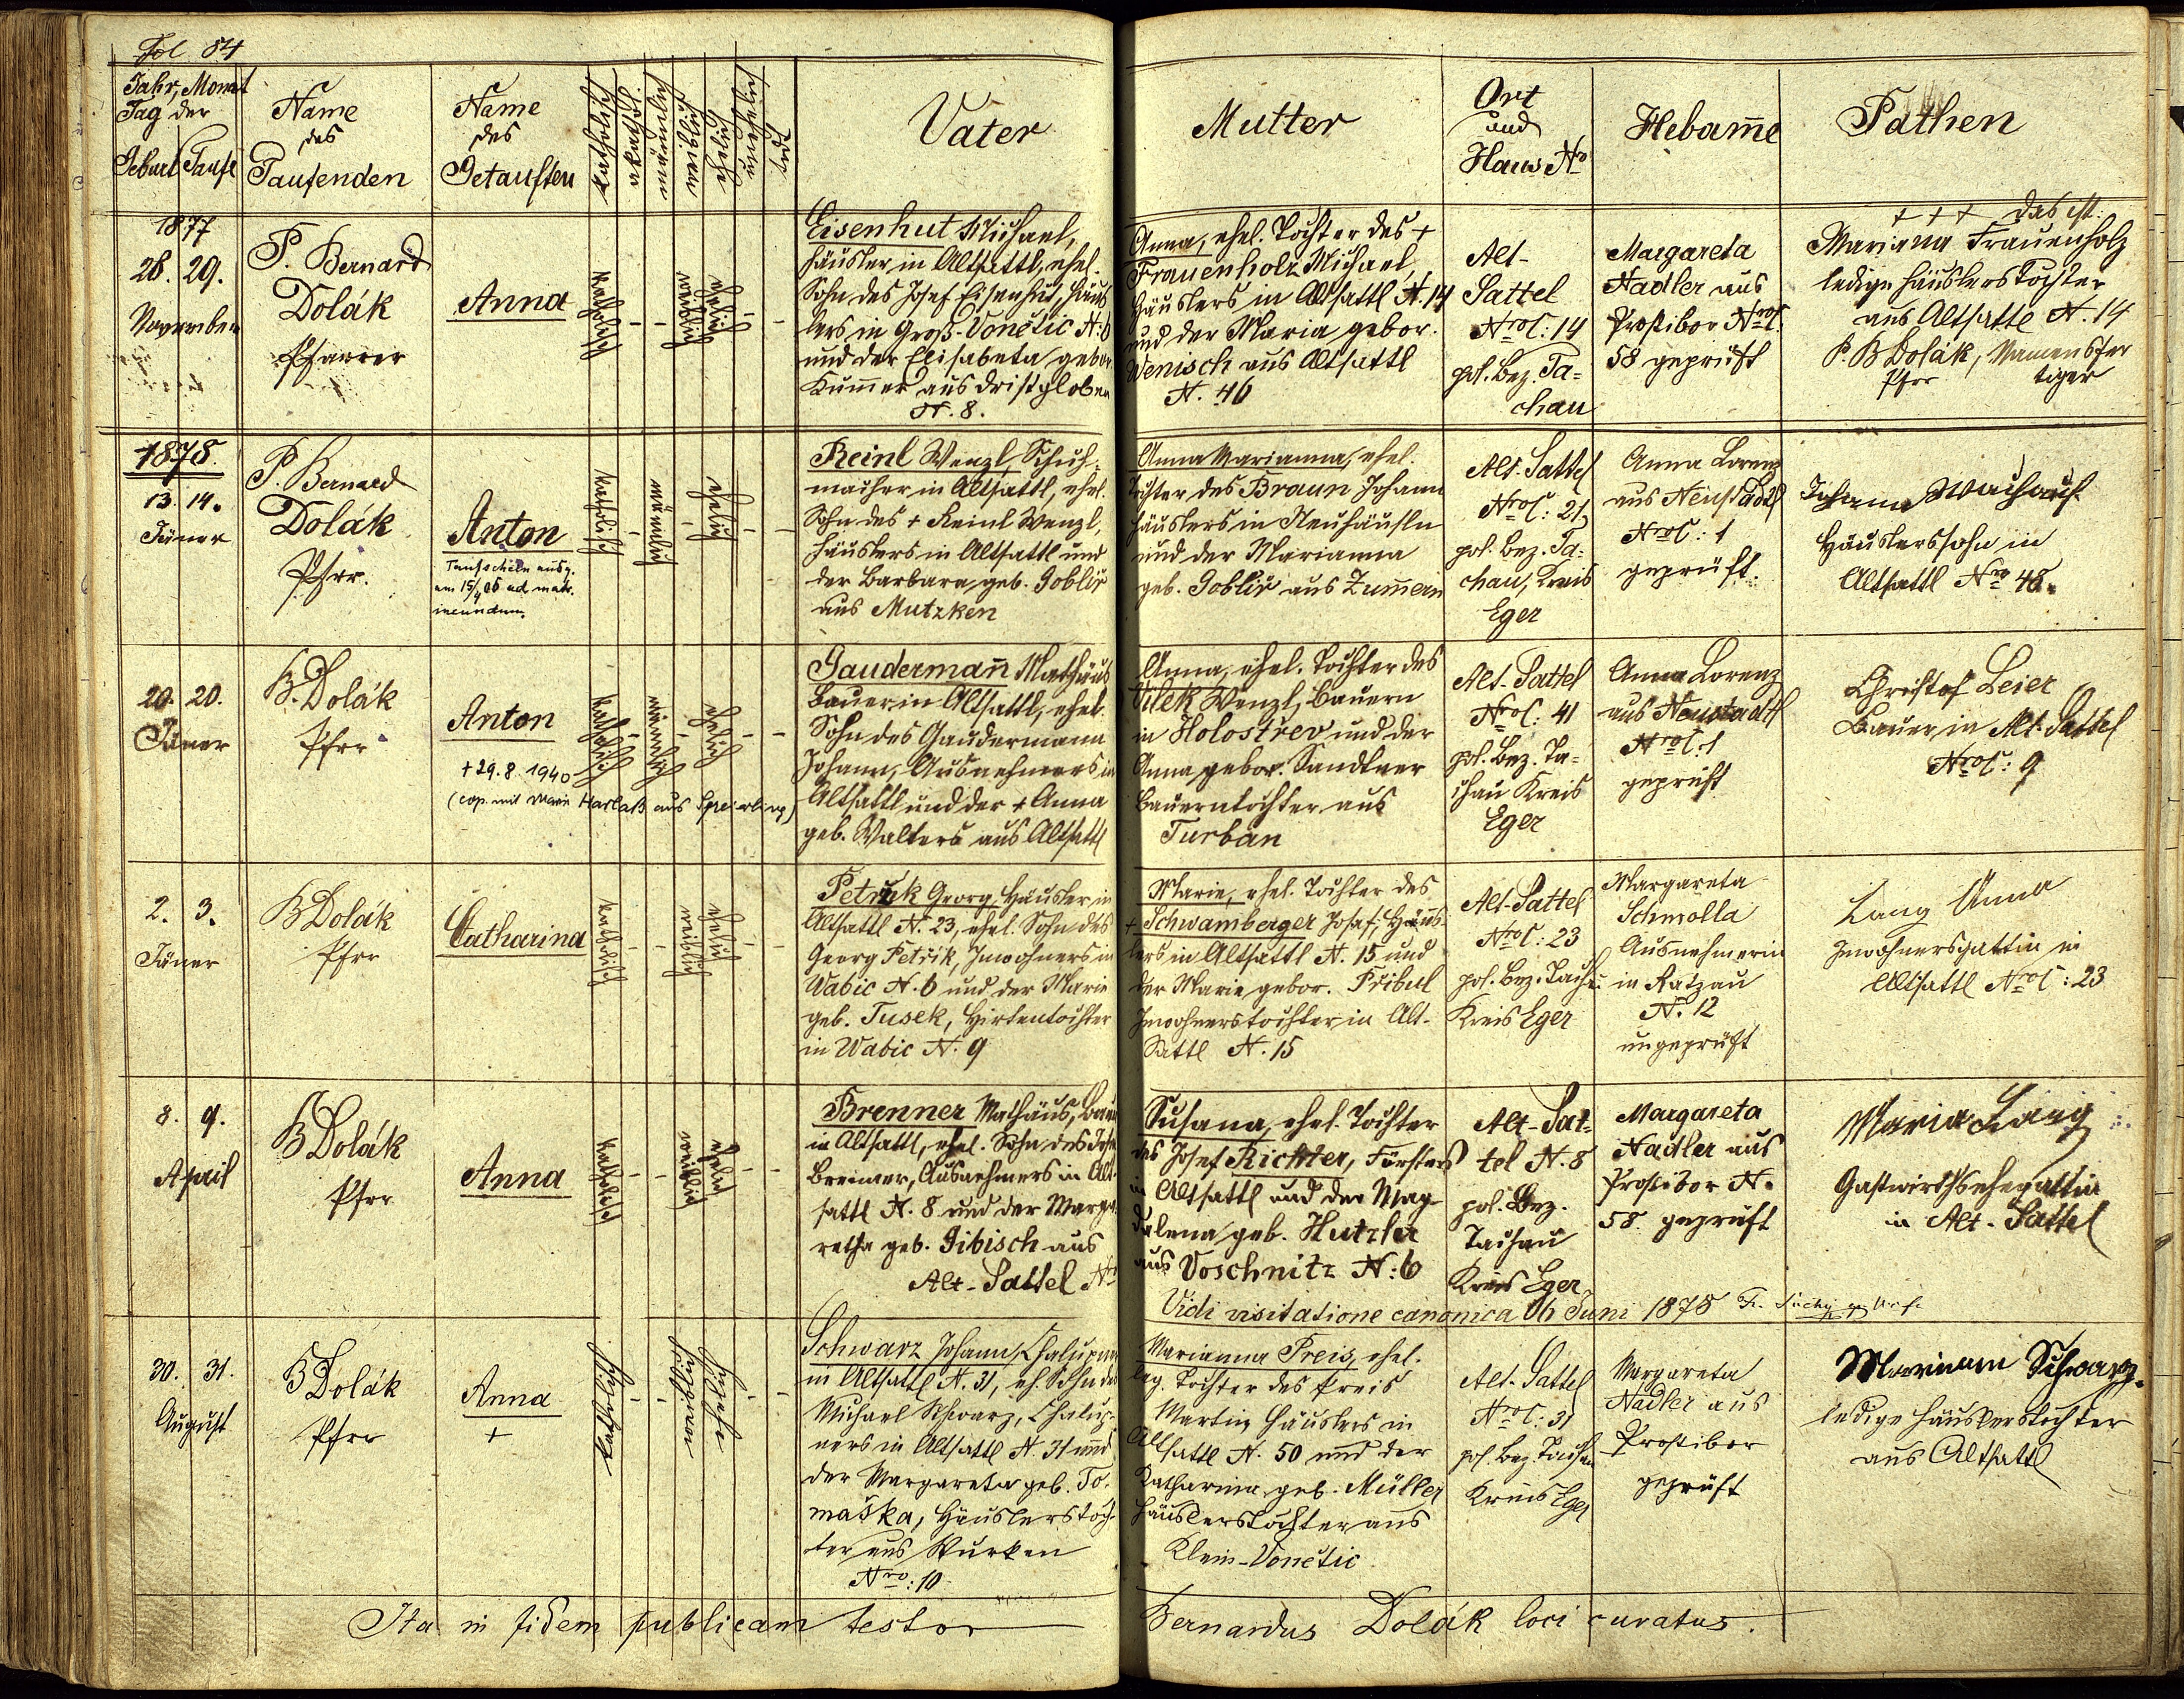 Fol 84
Jahr, Monat
Tag der
Geburt Taufe
Name
des
Taufenden
Name
des
Getauften
katholisch
akathol.
mänlich
weiblich
ehelich
unehelich
Vater
Mutter
Ort
und
Haus No
Hebam̅e
Pathen
1877
28. 29.
November
P. Bernard
Dolák
Pfarrer
Anna
katholisch
weiblich
ehelich
Eisenhut Michael,
Häusler in Altsattl, ehel.
Sohn des Josef Eisenhut, Häus
lers in Groß-Vonětic N: 6
und der Elisabeta gebor.
Kum̅er aus
N. 8.
Anna, ehel. Tochter des +
Frauenholz Michael
Häuslers in Altsattl N. 14
und der Maria gebor.
Wenisch aus Altsattl
N. 46
Alt-
Sattel
NroC: 14
pol. Bez. Ta=
chau
Margareta
Nadler aus
Prostibor NroC.
58 geprüft
+ + + das ist.
Mariana Frauenholz
ledige Häuslerstochter
aus Altsattl N. 14
P. B Dolák, Namensfer
Pfrr tiger
1878.
13. 14.
Jäner
P. Bernard
Dolák
Pfrr.
Anton
Taufschein ausg.
am 15/4 06 ad matr.
ineundum.
katholisch
mänlich
ehelich
Reinl Wenzl, Schuh=
macher in Altsattl, ehel.
Sohn des + Reinl Wenzl,
Häuslers in Altsattl und
der Barbara geb. Goblir
aus Mutzken
Anna Marianna, ehel.
Tochter des Braun Johann
Häuslers in Neuhäusln
und der Marianna
geb. Goblir aus Zum̅ern
Alt-Sattel
NroC: 21
pol. Bez. Ta=
chau, Kreis
Eger
Anna Lorenz
aus Neustadtl
NroC: 1
geprüft.
Johann
Häuslerssohn in
Altsattl Nro 48.
20. 20.
Jäner
B. Dolák
Pfrr
Anton
+ 29. 8. 1940
(cop. mit Marie Harlaß aus Speierling)
katholisch
männlich
ehelich
Gaudermañ Mathäus
Bauer in Altsattl, ehel.
Sohn des Gaudermann
Johann, Ausnehmers in
Altsattl und der + Anna
geb. Walters aus Altsattl
Anna, ehel. Tochter des
Vilek Wenzl, Bauern
in Holostřev und der
Anna gebor. Sandtner
Bauerntochter aus
Turban
Alt-Sattel
NroC: 41
pol. Bez. Ta=
chau Kreis
Eger
Anna Lorenz
aus Neustadtl
NroC. 1
geprüft
Christof Leier
Bauer in Alt-Sattel
NroC: 9
2. 3.
Jäner
B Dolák
Pfrr
Catharina
katholisch
weiblich
ehelich
Petrik Georg, Häusler in
Altsattl N. 23, ehel. Sohn des
Georg Petřik, Inwohners in
Wabic N. 6 und der Marie
geb. Tusek, Hirtentochter
in Wabic N. 9
Marie, ehel. Tochter des
+ Schwamberger Josef, Häus=
lers in Altsattl N. 15 und
der Marie gebor. Přibul
Inwohnerstochter in Alt-
Sattl N. 15
Alt-Sattel
NroC: 23
pol. Bez. Tachau
Kreis Eger
Margareta
Schmolla
Ausnehmerin
in Ratzau
N. 12
ungeprüft
Lang Anna
Inwohnersgattin in
Altsattl NroC: 23
8. 9.
April
B Dolák
Pfrr
Anna
katholisch
weiblich
ehelich
Brenner Mathäus, Bauer
in Altsattl, ehel. Sohn des
Brenner, Ausnehmers in Alt-
sattl N. 8 und der Marga
retha geb. Gibisch aus
Alt-Sattel Nro
Susana, ehel. Tochter
des Josef Richter, Försters
in Altsattl und der Mag
dalena geb. Hutzler
aus Voschnitz N: 6
Alt-Sat=
tel N. 8
pol. Bez.
Tachau
Kreis Eger
Margareta
Nadler aus
Prostibor N.
58. geprüft
Maria Lang
Gastwirthsehegattin
in Alt-Sattel
Vidi visitatione canonica 06 Juni 1878
30. 31.
August
B Dolák
Pfrr
Anna
+
katholisch
weiblich
ehelich
Schwarz Johann, Chalupner
in Altsattl N. 31, eh. Sohn des
Michael Schwarz, Chalup=
ners in Altsattl N. 31 und
der Margareta geb. To=
maška, Häuslerstoch=
ter aus Wurken
Nro: 10
Marianna Preis, ehel.
leg. Tochter des Preis
Martin Häuslers in
Altsattl N. 50 und der
Katharina geb. Müller
Häuslerstochter aus
Klein-Vonětic
Alt-Sattel
NroC: 31
pol. Bez. Tachau
Kreis Eger
Margareta
Nadler aus
Prostibor
geprüft
Mariann Schwarz.
ledige Häuslerstochter
aus Altsattl
Ita in fidem publicam testor
Bernardus Dolák loci curatus.